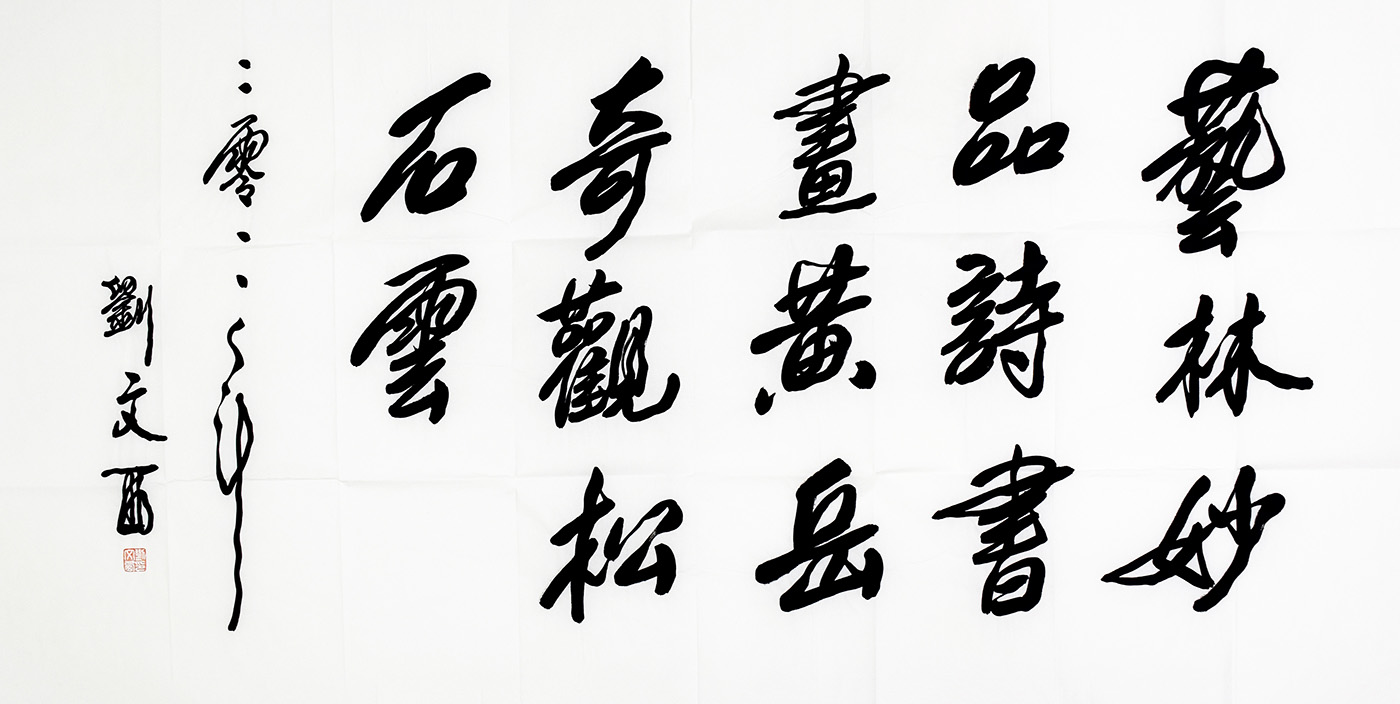 藝林妙
品詩書
畫黃岳
奇觀松
石雲
二零二二年
劉文酉